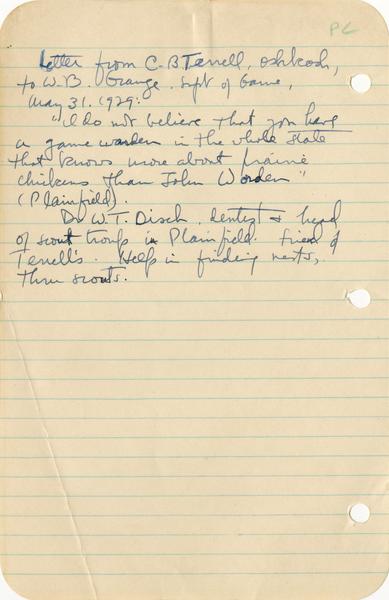 PC
Letter from C. B Terrell, Oshkosh,
to W. B. Grange. Supt of Game,
May 31. 1929:
"I do not believe that you have
a game warden in the whole state
that knows more about prairie
chickens than John Worden"
(Plainfield).
Dr W. T. Disch, dentist & head
of scout troup in Plainfield. Friend of
Terrell's. Helps in finding nests,
thru scouts.